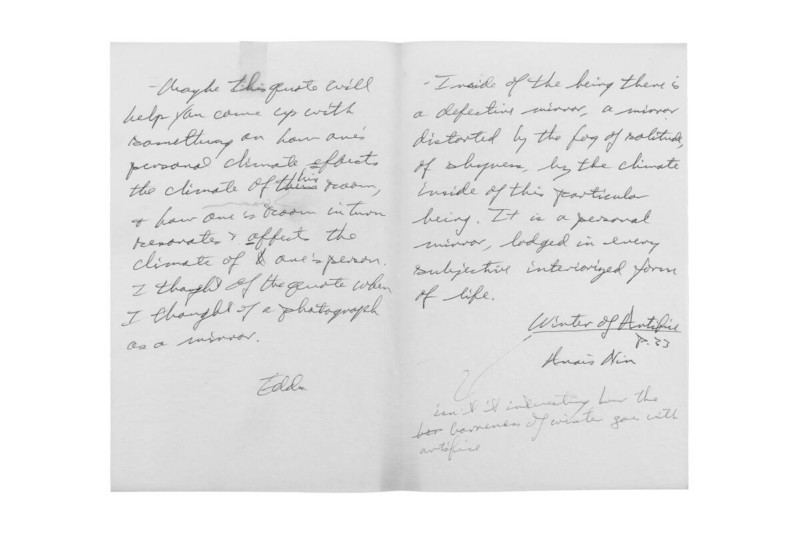 - Maybe this quote will
help you come up with
something on how one's
personal climate effects
the climate of this his room,
& how one's room in turn
resonates & affects the
climate of one's person.
I thought of the quote when
I thought of a photograph
as a mirror.
Edda
- Inside of the being there is
a defective mirror, a mirror
distorted by the fog of solitude,
of shyness, by the climate
inside of this particular
being. It is a personal
mirror, lodged in every
subjective interiorized form
of life.
Winter of Artifice
p. 33
Anais Nin
isn't it interesting how the
barrenness of winter goes with
artifice